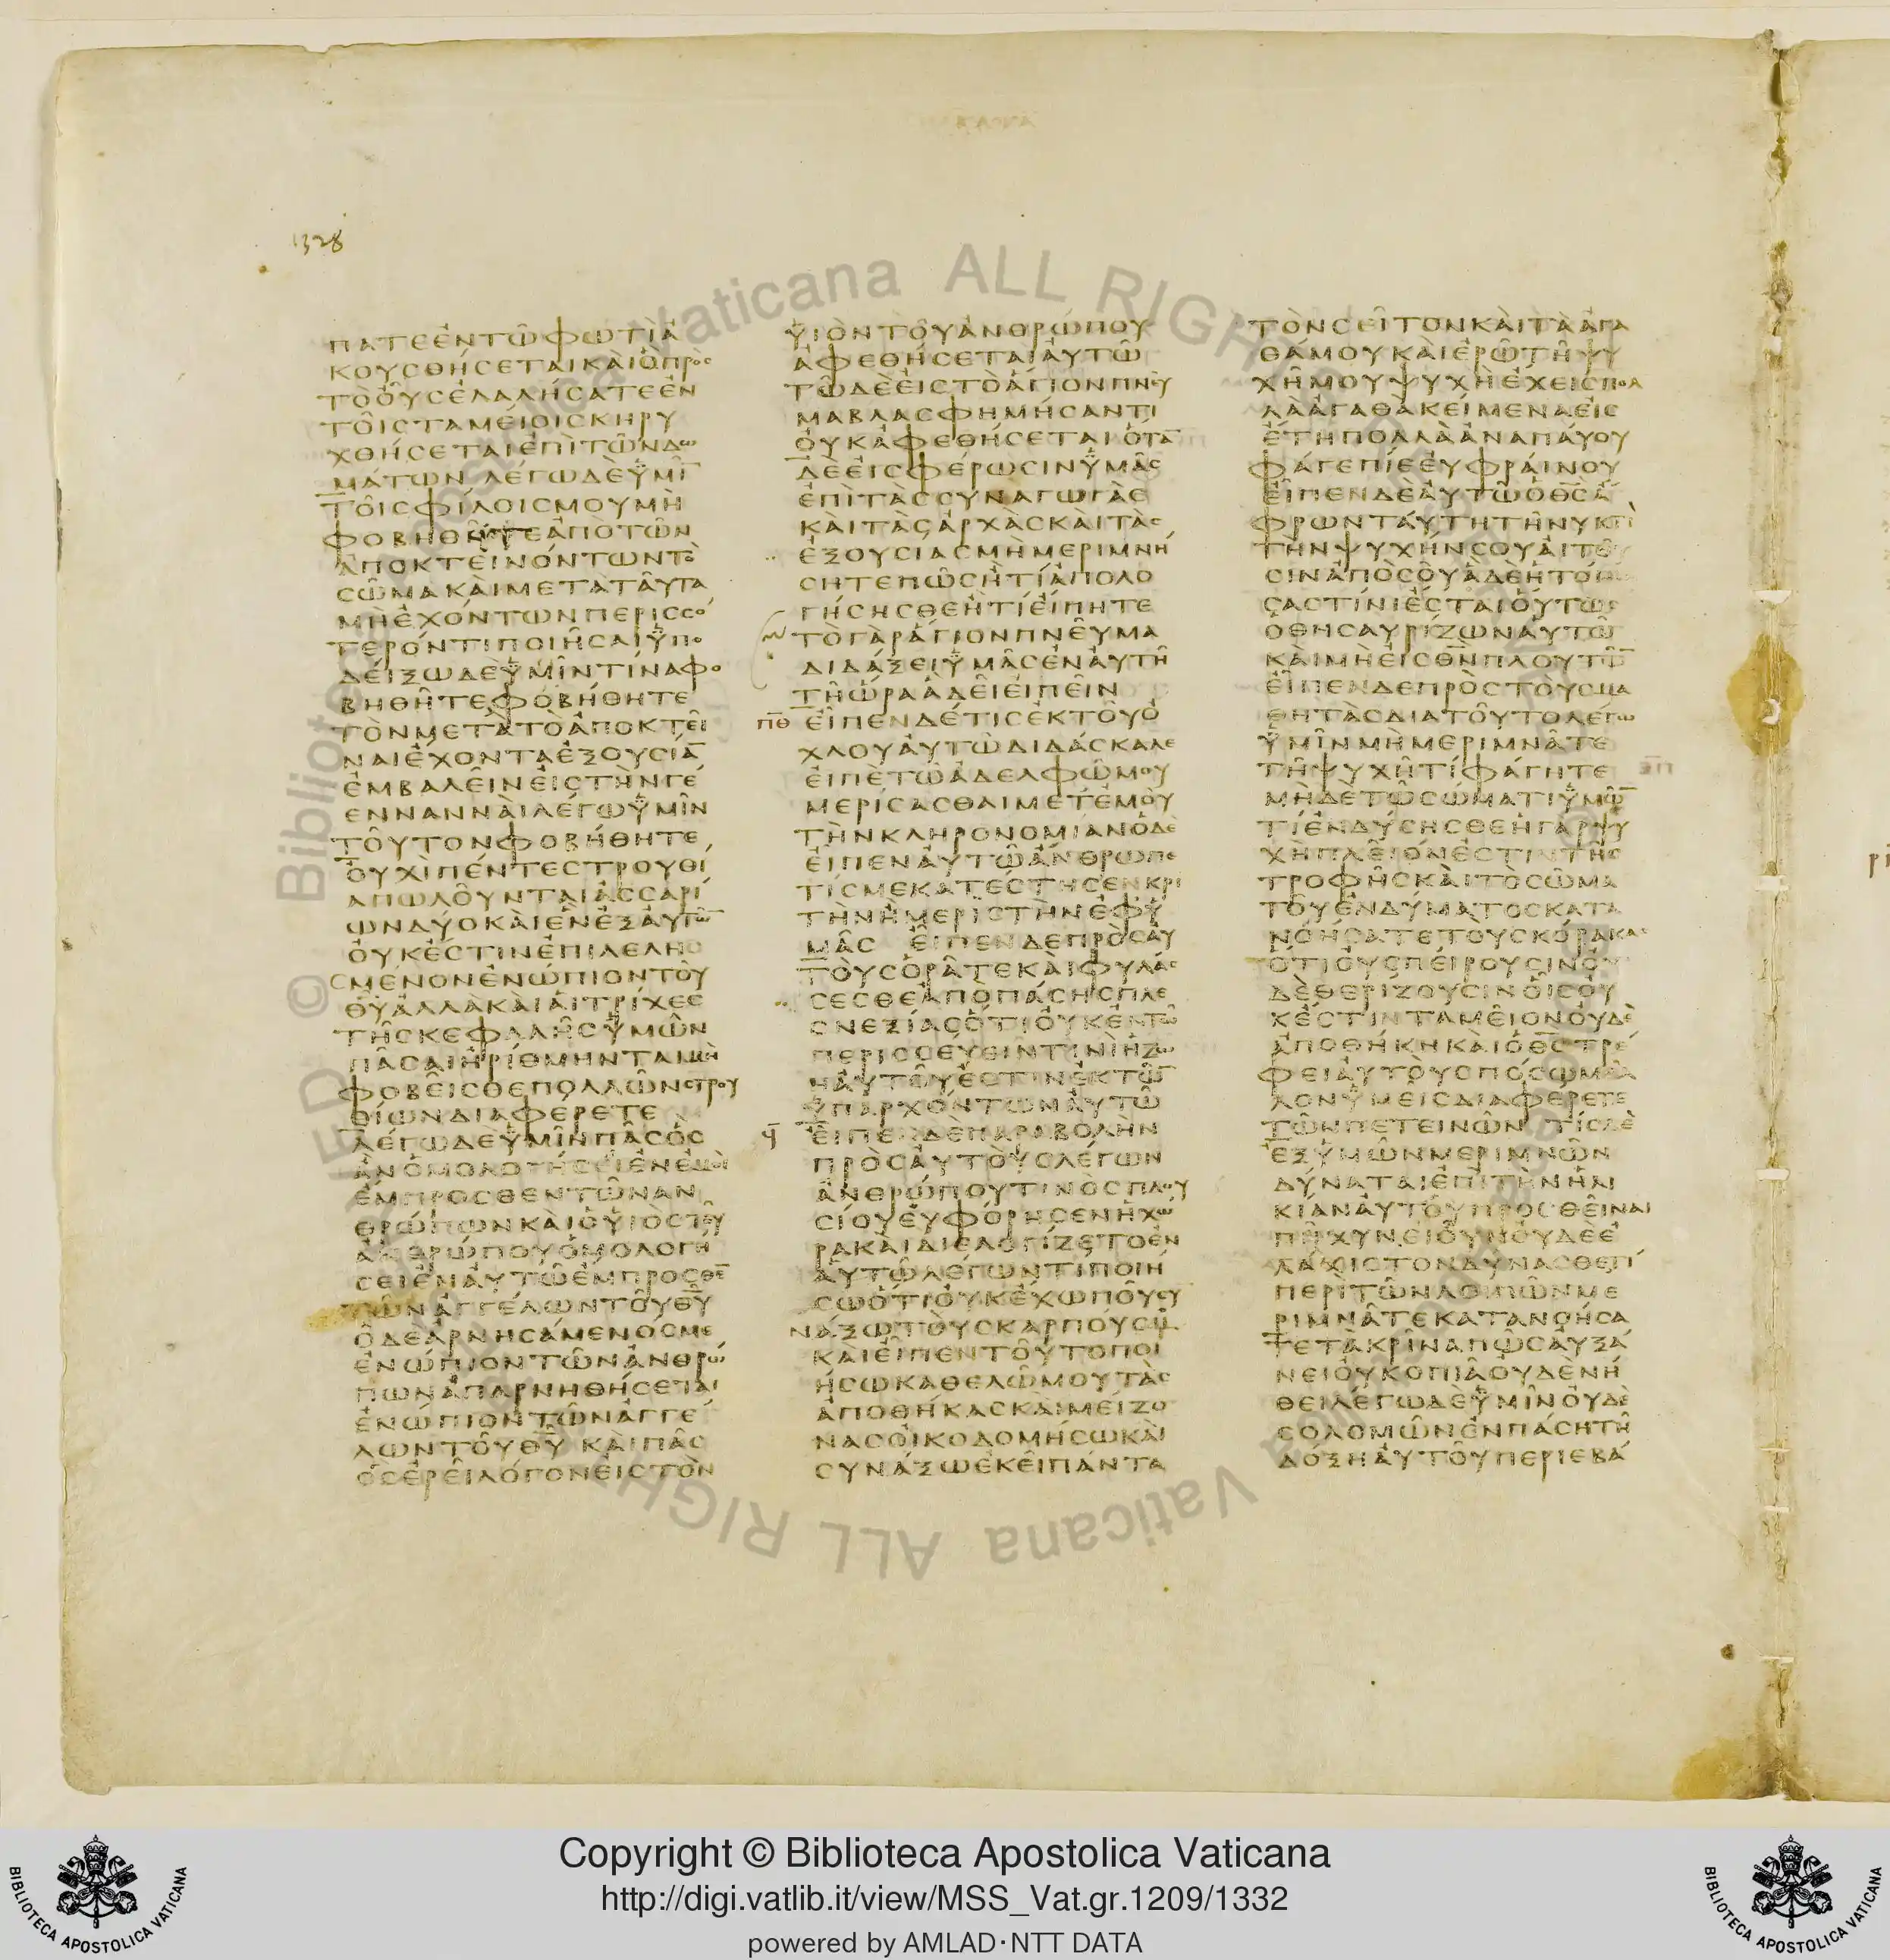 1328
ΠΑΤΕΕΝΤΩΦΩΤΙΑ
ΚΟΥΣΘΗΣΕΤΑΙΚΑΙΟΠΡΟΣ
ΤΟΟΥΣΕΛΑΛΗΣΑΤΕΕΝ
ΤΟΙΣΤΑΜΕΙΟΙΣΚΗΡΥ
ΧΘΗΣΕΤΑΙΕΠΙΤΩΝΔΩ
ΜΑΤΩΝ ΛΕΓΩΔΕΥΜΙ̅
ΤΟΙΣΦΙΛΟΙΣΜΟΥΜΗ
ΦΟΒΗΘΗΤΕΑΠΟΤΩΝ
ΑΠΟΚΤΕΙΝΟΝΤΩΝΤΟ
ΣΩΜΑΚΑΙΜΕΤΑΤΑΥΤΑ
ΜΗΕΧΟΝΤΩΝΠΕΡΙΣΣΟ
ΤΕΡΟΝΤΙΠΟΙΗΣΑΙΥΠΟ
ΔΕΙΞΩΔΕΥΜΙΝΤΙΝΑΦΟ
ΒΗΘΗΤΕΦΟΒΗΘΗΤΕ
ΤΟΝΜΕΤΑΤΟΑΠΟΚΤΕΙ
ΝΑΙΕΧΟΝΤΑΕΞΟΥΣΙΑ̅
ΕΜΒΑΛΕΙΝΕΙΣΤΗΝΓΕ
ΕΝΝΑΝΝΑΙΛΕΓΩΥΜΙΝ
ΤΟΥΤΟΝΦΟΒΗΘΗΤΕ
ΟΥΧΙΠΕΝΤΕΣΤΡΟΥΘΙ
ΑΠΩΛΟΥΝΤΑΙΑΣΣΑΡΙ
ΩΝΔΥΟΚΑΙΕΝΕΞΑΥΤΩ̅
ΟΥΚΕΣΤΙΝΕΠΙΛΕΛΗΣ
ΣΜΕΝΟΝΕΝΩΠΙΟΝΤΟΥ
Θ̅Υ̅ΑΛΛΑΚΑΙΑΙΤΡΙΧΕΣ
ΤΗΣΚΕΦΑΛΗΣΥΜΩΝ
ΠΑΣΑΙΗΡΙΘΜΗΝΤΑΙΜΗ
ΦΟΒΕΙΣΘΕΠΟΛΛΩΝΣΤΡΟΥ
ΘΙΩΝΔΙΑΦΕΡΕΤΕ
ΛΕΓΩΔΕΥΜΙΝΠΑΣΟΣ
ΑΝΟΜΟΛΟΓΗΣΕΙΕΝΕΜΟΙ
ΕΜΠΡΟΣΘΕΝΤΩΝΑΝ
ΘΡΩΠΩΝΚΑΙΟΥΙΟΣΤΟΥ
ΑΝΘΡΩΠΟΥΟΜΟΛΟΓΗ
ΣΕΙΕΝΑΥΤΩΕΜΠΡΟΣΘΕ̅
ΤΩΝΑΓΓΕΛΩΝΤΟΥΘ̅Υ̅
ΟΔΕΑΡΝΗΣΑΜΕΝΟΣΜΕ
ΕΝΩΠΙΟΝΤΩΝΑΝΘΡΩ
ΠΩΝΑΠΑΡΝΗΘΗΣΕΤΑΙ
ΕΝΩΠΙΟΝΤΩΝΑΓΓΕ
ΛΩΝΤΟΥΘ̅Υ̅ ΚΑΙΠΑΣ
ΟΣΕΡΕΙΛΟΓΟΝΕΙΣΤΟΝ
ΥΙΟΝΤΟΥΑΝΘΡΩΠΟΥ
ΑΦΕΘΗΣΕΤΑΙΑΥΤΩ
ΤΩΔΕΕΙΣΤΟΑΓΙΟΝΠΝΕΥ
ΜΑΒΛΑΣΦΗΜΗΣΑΝΤΙ
ΟΥΚΑΦΕΘΗΣΕΤΑΙΟΤΑ̅
ΔΕΕΙΣΦΕΡΩΣΙΝΥΜΑΣ
ΕΠΙΤΑΣΣΥΝΑΓΩΓΑΣ
ΚΑΙΤΑΣΑΡΧΑΣΚΑΙΤΑΣ
ΕΞΟΥΣΙΑΣΜΗΜΕΡΙΜΝΗ
ΣΗΤΕΠΩΣΗΤΙΑΠΟΛΟ
ΓΗΣΗΣΘΕΗΤΙΕΙΠΗΤΕ
ΤΟΓΑΡΑΓΙΟΝΠΝΕΥΜΑ
ΔΙΔΑΞΕΙΥΜΑΣΕΝΑΥΤΗ
ΤΗΩΡΑΑΔΕΙΕΙΠΕΙΝ
Π̅Θ̅ ΕΙΠΕΝΔΕΤΙΣΕΚΤΟΥΟ
ΧΛΟΥΑΥΤΩΔΙΔΑΣΚΑΛΕ
ΕΙΠΕΤΩΑΔΕΛΦΩΜΟΥ
ΜΕΡΙΣΑΣΘΑΙΜΕΤΕΜΟΥ
ΤΗΝΚΛΗΡΟΝΟΜΙΑΝΟΔΕ
ΕΙΠΕΝΑΥΤΩΑΝΘΡΩΠΕ
ΤΙΣΜΕΚΑΤΕΣΤΗΣΕΝΚΡΙ
ΤΗΝΗΜΕΡΙΣΤΗΝΕΦΥ
ΜΑΣ ΕΙΠΕΝΔΕΠΡΟΣΑΥ
ΤΟΥΣΟΡΑΤΕΚΑΙΦΥΛΑΣ
ΣΕΣΘΕΑΠΟΠΑΣΗΣΠΛΕ
ΟΝΕΞΙΑΣΟΤΙΟΥΚΕΝΤΩ
ΠΕΡΙΣΣΕΥΕΙΝΤΙΝΙΗΖΩ
ΗΑΥΤΟΥΕΣΤΙΝΕΚΤΩ̅
ΥΠΑΡΧΟΝΤΩΝΑΥΤΩ
Ϥ̅ ΕΙΠΕΝΔΕΠΑΡΑΒΟΛΗΝ
ΠΡΟΣΑΥΤΟΥΣΛΕΓΩΝ
ΑΝΘΡΩΠΟΥΤΙΝΟΣΠΛΟΥ
ΣΙΟΥΕΥΦΟΡΗΣΕΝΗΧΩ
ΡΑΚΑΙΔΙΕΛΟΓΙΖΕΤΟΕΝ
ΑΥΤΩΛΕΓΩΝΤΙΠΟΙΗ
ΣΩΟΤΙΟΥΚΕΧΩΠΟΥΣΥ
ΝΑΞΩΤΟΥΣΚΑΡΠΟΥΣΜΟΥ
ΚΑΙΕΙΠΕΝΤΟΥΤΟΠΟΙ
ΗΣΩΚΑΘΕΛΩΜΟΥΤΑΣ
ΑΠΟΘΗΚΑΣΚΑΙΜΕΙΖΟ
ΝΑΣΟΙΚΟΔΟΜΗΣΩΚΑΙ
ΣΥΝΑΞΩΕΚΕΙΠΑΝΤΑ
ΤΟΝΣΕΙΤΟΝΚΑΙΤΑΑΓΑ
ΘΑΜΟΥΚΑΙΕΡΩΤΗΨΥ
ΧΗΜΟΥΨΥΧΗΕΧΕΙΣΠΟΛ
ΛΑΑΓΑΘΑΚΕΙΜΕΝΑΕΙΣ
ΕΤΗΠΟΛΛΑΑΝΑΠΑΥΟΥ
ΦΑΓΕΠΙΕΕΥΦΡΑΙΝΟΥ
ΕΙΠΕΝΔΕΑΥΤΩΟΘ̅Σ̅Α
ΦΡΩΝΤΑΥΤΗΤΗΝΥΚΤΙ
ΤΗΝΨΥΧΗΝΣΟΥΑΙΤΟΥ
ΣΙΝΑΠΟΣΟΥΑΔΕΗΤΟΙΜΑ
ΣΑΣΤΙΝΙΕΣΤΑΙΟΥΤΩΣ
ΟΘΗΣΑΥΡΙΖΩΝΑΥΤΩ
ΚΑΙΜΗΕΙΣΘ̅Ν̅ΠΛΟΥΤΩ̅
ΕΙΠΕΝΔΕΠΡΟΣΤΟΥΣΜΑ
ΘΗΤΑΣΔΙΑΤΟΥΤΟΛΕΓΩ
ΥΜΙΝΜΗΜΕΡΙΜΝΑΤΕ
ΤΗΨΥΧΗΤΙΦΑΓΗΤΕ
ΜΗΔΕΤΩΣΩΜΑΤΙΥΜΩ̅
ΤΙΕΝΔΥΣΗΣΘΕΗΓΑΡΨΥ
ΧΗΠΛΕΙΟΝΕΣΤΙΝΤΗΣ
ΤΡΟΦΗΣΚΑΙΤΟΣΩΜΑ
ΤΟΥΕΝΔΥΜΑΤΟΣΚΑΤΑ
ΝΟΗΣΑΤΕΤΟΥΣΚΟΡΑΚΑΣ
ΟΤΙΟΥΣΠΕΙΡΟΥΣΙΝΟΥ
ΔΕΘΕΡΙΖΟΥΣΙΝΟΙΣΟΥ
ΚΕΣΤΙΝΤΑΜΕΙΟΝΟΥΔΕ
ΑΠΟΘΗΚΗΚΑΙΟΘ̅Σ̅ΤΡΕ
ΦΕΙΑΥΤΟΥΣΠΟΣΩΜΑΛ
ΛΟΝΥΜΕΙΣΔΙΑΦΕΡΕΤΕ
ΤΩΝΠΕΤΕΙΝΩΝ ΤΙΣΔΕ
ΕΞΥΜΩΝΜΕΡΙΜΝΩΝ
ΔΥΝΑΤΑΙΕΠΙΤΗΝΗΛΙ
ΚΙΑΝΑΥΤΟΥΠΡΟΣΘΕΙΝΑΙ
ΠΗΧΥΝΕΙΟΥΝΟΥΔΕΕ
ΛΑΧΙΣΤΟΝΔΥΝΑΣΘΕΤΙ
ΠΕΡΙΤΩΝΛΟΙΠΩΝΜΕ
ΡΙΜΝΑΤΕΚΑΤΑΝΟΗΣΑ
ΤΕΤΑΚΡΙΝΑΠΩΣΑΥΞΑ
ΝΕΙΟΥΚΟΠΙΑΟΥΔΕΝΗ
ΘΕΙΛΕΓΩΔΕΥΜΙΝΟΥΔΕ
ΣΟΛΟΜΩΝΕΝΠΑΣΗΤΗ
ΔΟΞΗΑΥΤΟΥΠΕΡΙΕΒΑ
Copyright © Biblioteca Apostolica Vaticana
http://digi.vatlib.it/view/MSS_Vat.gr.1209/1332
powered by AMLAD·NTT DATA
BIBLIOTECA APOSTOLICA VATICANA
BIBLIOTECA APOSTOLICA VATICANA